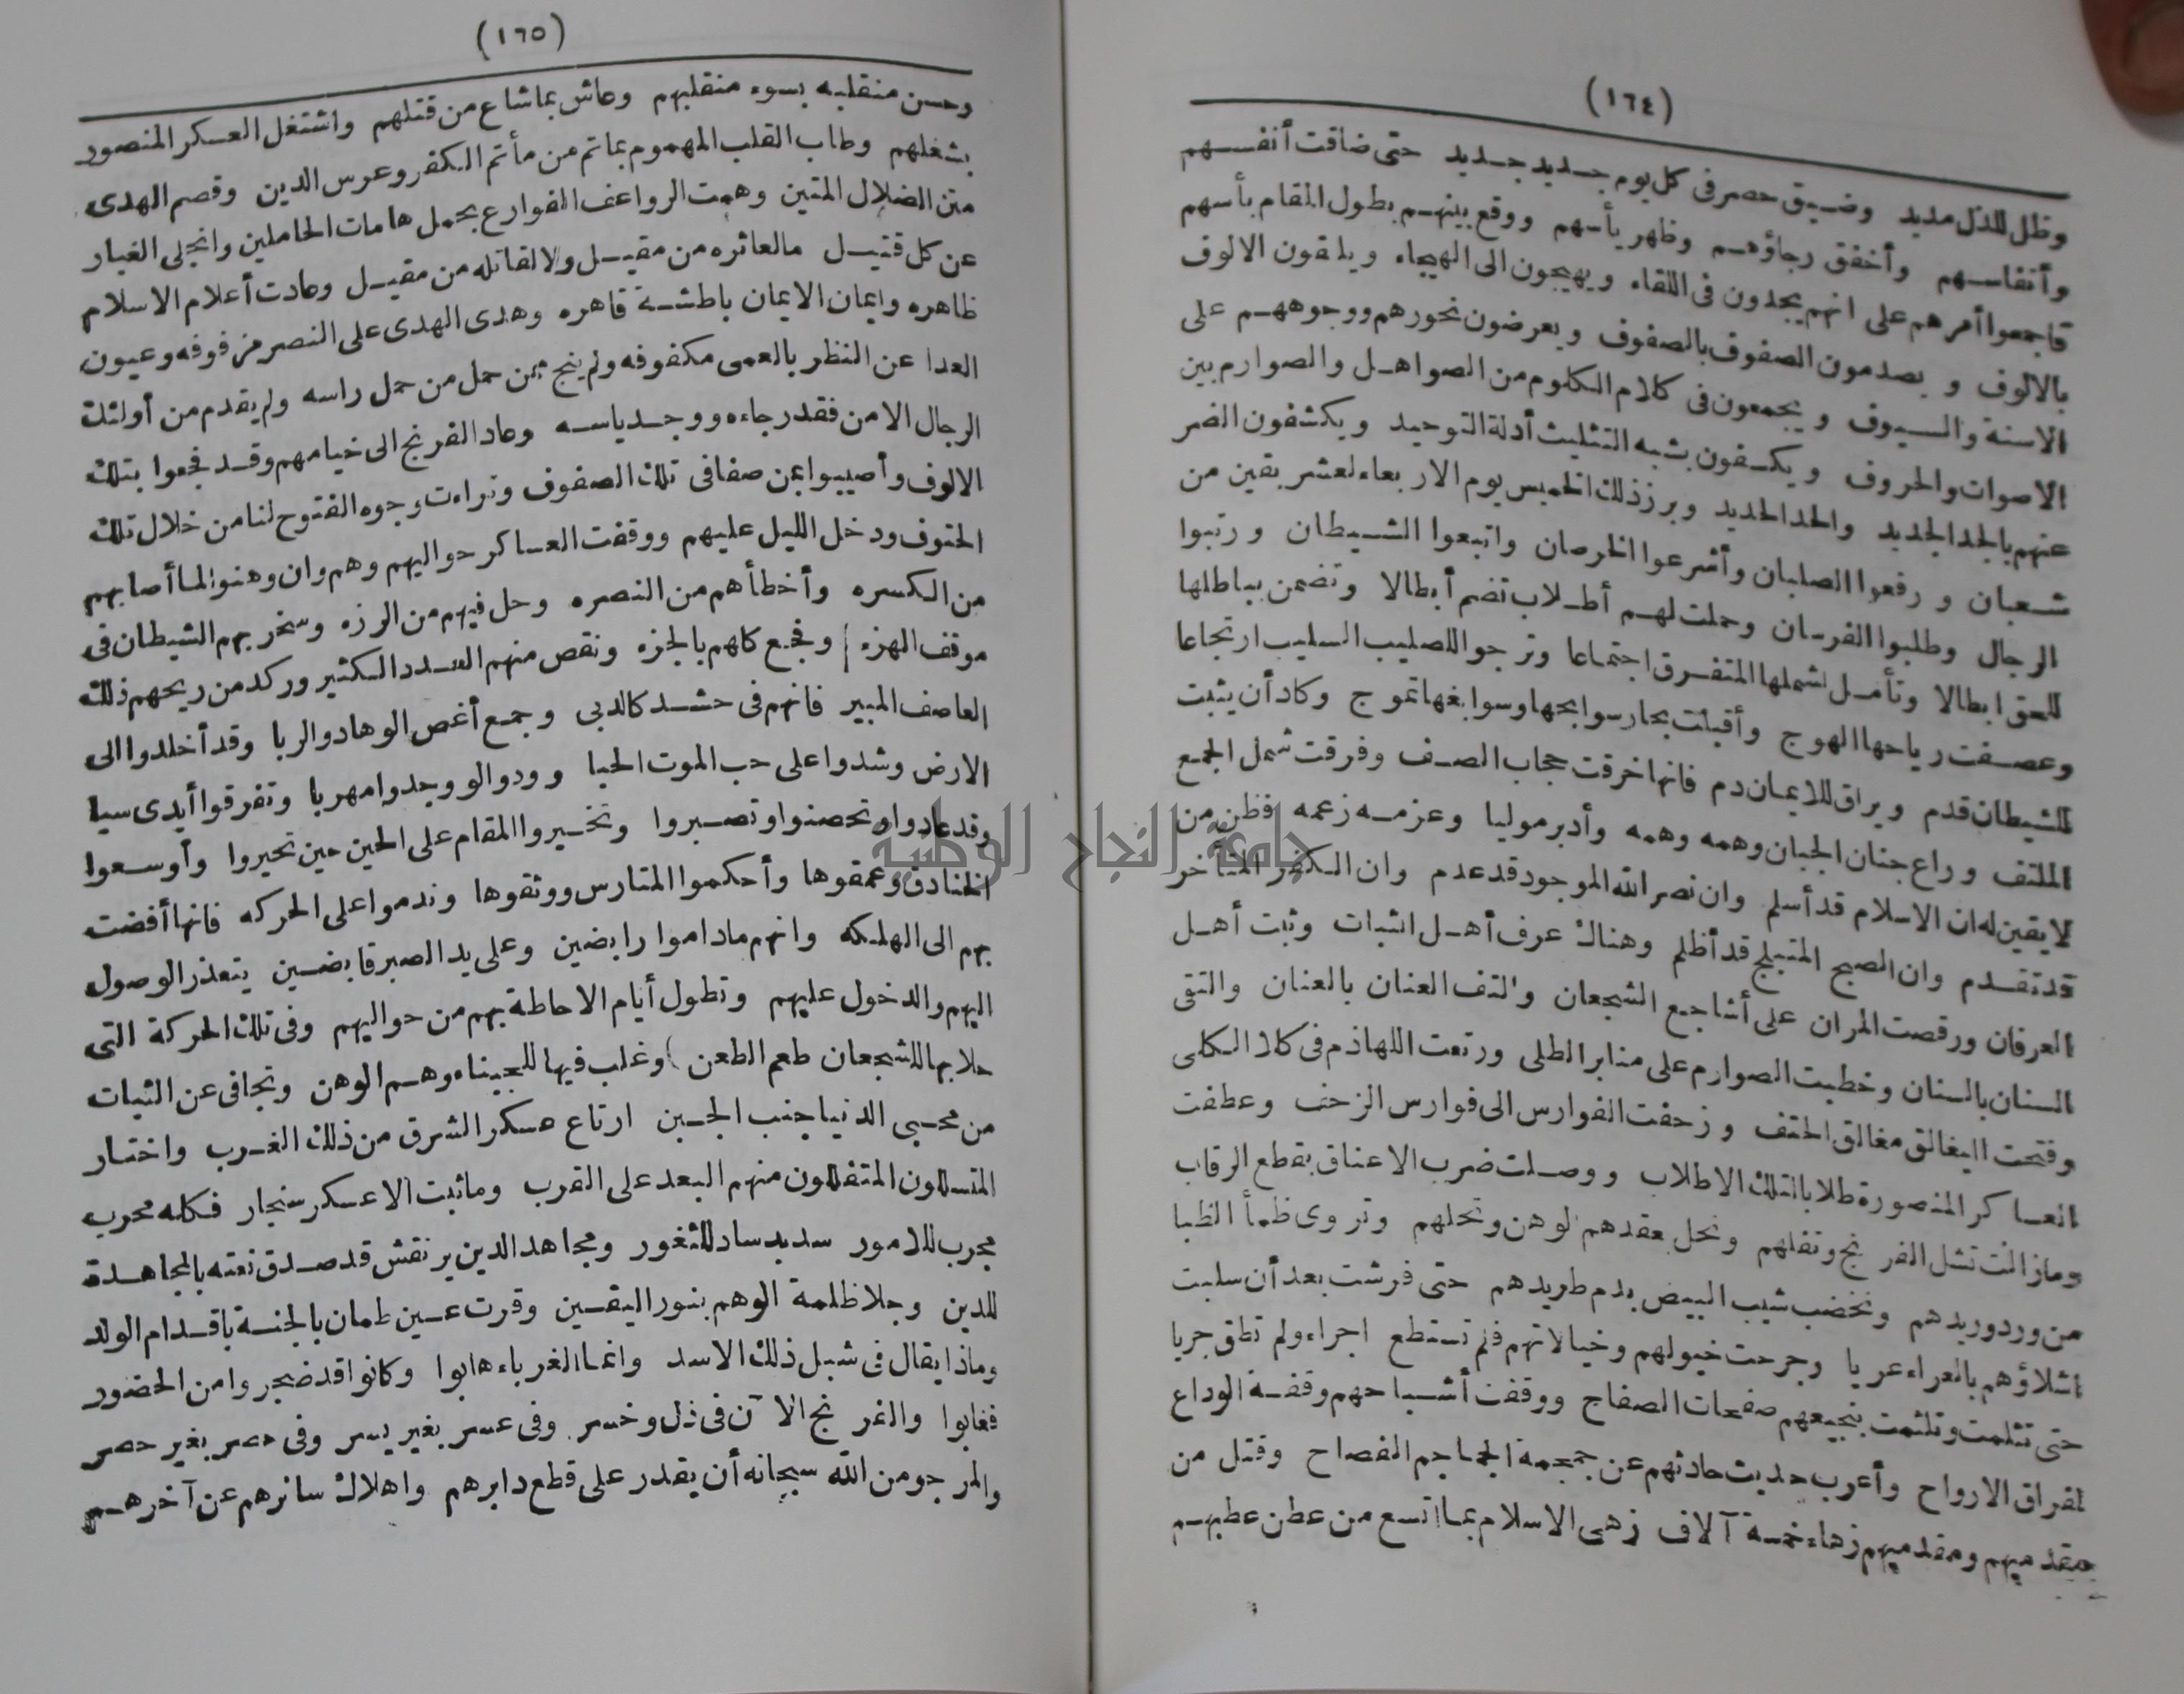 (١٦٤)
وظل للذل مديد وضيق حصر فى كل يوم جديد جديد حتى ضاقت أنفسهم
وأنفاسهم وأخفق رجاؤهم وظهر يأسهم ووقع بينهم بطول المقام بأسهم
فاجمعوا أمرهم على انهم يجدون فى اللقاء ويهيجون الى الهيجاء ويلقون الالوف
بالالوف و يصدمون الصفوف بالصفوف ويعرضون نحورهم ووجوههم على
الاسنة والسيوف ويجمعون فى كلام الكلوم من الصواهل والصوارم بين
الاصوات والحروف ويكسفون بشبه التثليث أدلة التوحيد ويكشفون الضر
عنهم بالجد الجديد والحد الحديد وبرز ذلك الخميس يوم الاربعاء لعشر بقين من
شعبان و رفعوا الصلبان وأشرعوا الخرصان واتبعوا الشيطان ورتبوا
الرجال وطلبوا الفرسان وحملت لهم أطلاب تضم أبطالا وتضمن بباطلها
للحق ابطالا وتأمل لشملها المتفرق اجتماعا وترجو للصليب السليب ارتجاعا
وعصفت رياحها الهوج وأقبلت بحار سوابحها وسوابغها تموج وكاد أن يثبت
للشيطان قدم ويراق للايمان دم فانها خرقت حجاب الصف وفرقت شمل الجمع
الملتف وراع جنان الجبان وهمه وهمه وأدبر موليا وعزمه زعمه فظن من
لا يقين له ان الاسلام قد أسلم وان نصر الله الموجود قد عدم وان الكفر المتأخر
قد تقدم وان الصبح المتبلج قد أظلم وهناك عرف أهل الثبات وثبت أهل
العرفان ورقصت المران على أشاجع الشجعان والتف العنان بالعنان والتقى
السنان بالسنان وخطبت الصوارم على منابر الطلى ورتعت اللهاذم فى كلا الكلى
وفتحت اليغالق مغالق الحتف وزحفت الفوارس الى فوارس الزحف وعطفت
العساكر المنصورة طلابا لتلك الاطلاب ووصلت ضرب الاعناق بقطع الرقاب
وما زالت تشل الفرنج وتفلهم وتحل بعقدهم الوهن وتحلهم وتروى ظمأ الظبا
من ورد وريدهم وتخضب شيب البيض بدم طريدهم حتى فرشت بعد أن سلبت
اشلاؤهم بالعراء عريا وجرحت خيولهم وخيالاتهم فلم تستطع اجراء ولم تطق جريا
حتى تثلمت وتلثمت بنجيعهم صفحات الصفاح ووقفت أشباحهم وقفة الوداع
لفراق الارواح وأعرب حديث حادثهم عن جمجمة الجماجم الفصاح وقتل من
مقدميهم ومقدميهم زهاء خمسة آلاف زهى الاسلام بما اتسع من عطن عطبهم
(١٦٥)
وحسن منقلبه بسوء منقلبهم وعاش بما شاع من قتلهم واشتغل العسكر المنصور
بشغلهم وطاب القلب المهموم بما تم من مأتم الكفر وعرس الدين وقصم الهدى
متن الضلال المتين وهمت الرواعف القوارع بحمل هامات الحاملين وانجلى الغبار
عن كل قتيل ما لعاثره من مقيل ولا لقاتله من مقيل وعادت أعلام الاسلام
ظاهره وايمان الايمان باطشة قاهره وهدى الهدى على النصر موقوفه وعيون
العدا عن النظر بالعمى مكفوفه ولم ينج ممن حمل من حمل راسه ولم يقدم من أولئك
الرجال الا من فقد رجاءه ووجد ياسه وعاد الفرنج الى خيامهم وقد فجعوا بتلك
الالوف وأصيبوا بمن صفا فى تلك الصفوف وتراءت وجوه الفتوح لنا من خلال تلك
الحتوف ودخل الليل عليهم ووقفت العساكر حواليهم وهم وان وهنوا لما أصابهم
من الكسره وأخطأهم من النصره وحل فيهم من الرزء وسخر بهم الشيطان فى
موقف الهزء وفجع كلهم بالجزء ونقص منهم العدد الكثير وركد من ريحهم ذلك
العاصف المبير فانهم فى حشد كالدبى وجمع أغص الوهاد والربا وقد أخلدوا الى
الارض وشدوا على حب الموت الحبا وودوا لو وجدوا مهربا وتفرقوا أيدى سبا
وقد عادوا وتحصنوا وتصبروا وتخيروا المقام على الحين حين تحيروا وأوسعوا
الخنادق وعمقوها وأحكموا المتارس ووثقوها وندموا على الحركه فانها أفضت
بهم الى الهلكه وانهم ما داموا رابضين وعلى يد الصبر قابضين يتعذر الوصول
اليهم والدخول عليهم وتطول أيام الاحاطة بهم من حواليهم وفى تلك الحركة التى
حلا بها للشجعان طعم الطعن وغلب فيها للجبناء وهم الوهن وتجافى عن الثبات
من محبى الدنيا جنب الجبن ارتاع عسكر الشرق من ذلك الغرب واختار
المتسللون المتفللون منهم البعد على القرب وما ثبت الا عسكر سنجار فكله محرب
مجرب للامور سديد ساد للثغور ومجاهد الدين يرنقش قد صدق نعته بالمجاهدة
للدين وجلا ظلمة الوهم بنور اليقين وقرت عين طمان بالجنة باقدام الولد
وماذا يقال فى شبل ذلك الاسد وانما الغرباء هابوا وكانوا قد ضجروا من الحضور
فغابوا والفرنج الآن فى ذل وخسر وفى عسر بغير يسر وفى حصر بغير حصر
والمرجو من الله سبحانه أن يقدر على قطع دابرهم واهلاك سائرهم عن آخرهم
جامعة النجاح الوطنية